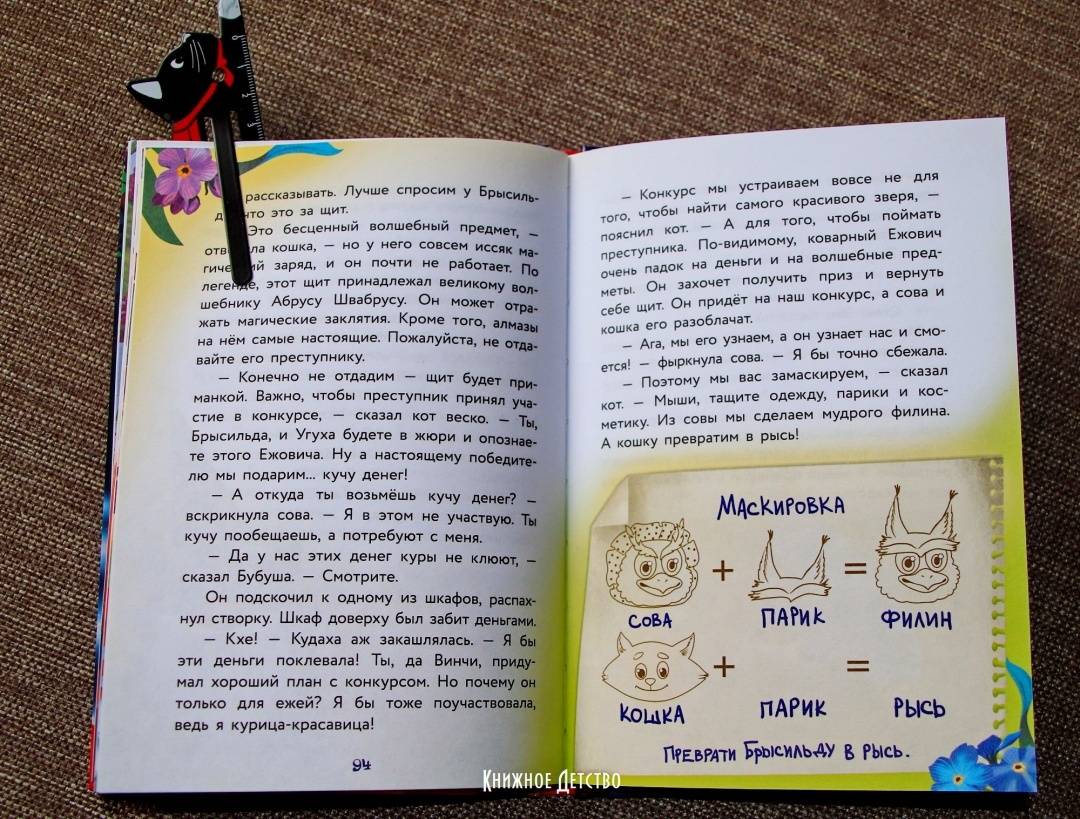 рассказывать. Лучше спросим у Брысиль-
что это за щит.
Это бесценный волшебный предмет, —
кошка, — но у него совсем иссяк ма-
заряд, и он почти не работает. По
легенде, этот щит принадлежал великому вол-
шебнику Абрусу Швабрусу. Он может отра-
жать магические заклятия. Кроме того, алмазы
на нём самые настоящие. Пожалуйста, не отда-
вайте его преступнику.
— Конечно не отдадим — щит будет при-
манкой. Важно, чтобы преступник принял уча-
стие в конкурсе, — сказал кот веско. — Ты,
Брысильда, и Угуха будете в жюри и опознае-
те этого Ежовича. Ну а настоящему победите-
лю мы подарим... кучу денег!
— А откуда ты возьмёшь кучу денег? —
вскрикнула сова. — Я в этом не участвую. Ты
кучу пообещаешь, а потребуют с меня.
— Да у нас этих денег куры не клюют, —
сказал Бубуша. — Смотрите.
Он подскочил к одному из шкафов, распах-
нул створку. Шкаф доверху был забит деньгами.
— Кхе! — Кудаха аж закашлялась. — Я бы
эти деньги поклевала! Ты, да Винчи, приду-
мал хороший план с конкурсом. Но почему он
только для ежей? Я бы тоже поучаствовала,
ведь я курица-красавица!
94
— Конкурс мы устраиваем вовсе не для
того, чтобы найти самого красивого зверя, —
пояснил кот. — А для того, чтобы поймать
преступника. По-видимому, коварный Ежович
очень падок на деньги и на волшебные пред-
меты. Он захочет получить приз и вернуть
себе щит. Он придёт на наш конкурс, а сова и
кошка его разоблачат.
— Ага, мы его узнаем, а он узнает нас и смо-
ется! — фыркнула сова. — Я бы точно сбежала.
— Поэтому мы вас замаскируем, — сказал
кот. — Мыши, тащите одежду, парики и кос-
метику. Из совы мы сделаем мудрого филина.
А кошку превратим в рысь!
Маскировка
+ =
сова парик филин
+ =
кошка парик рысь
Преврати Брысильду в рысь.
Книжное Детство